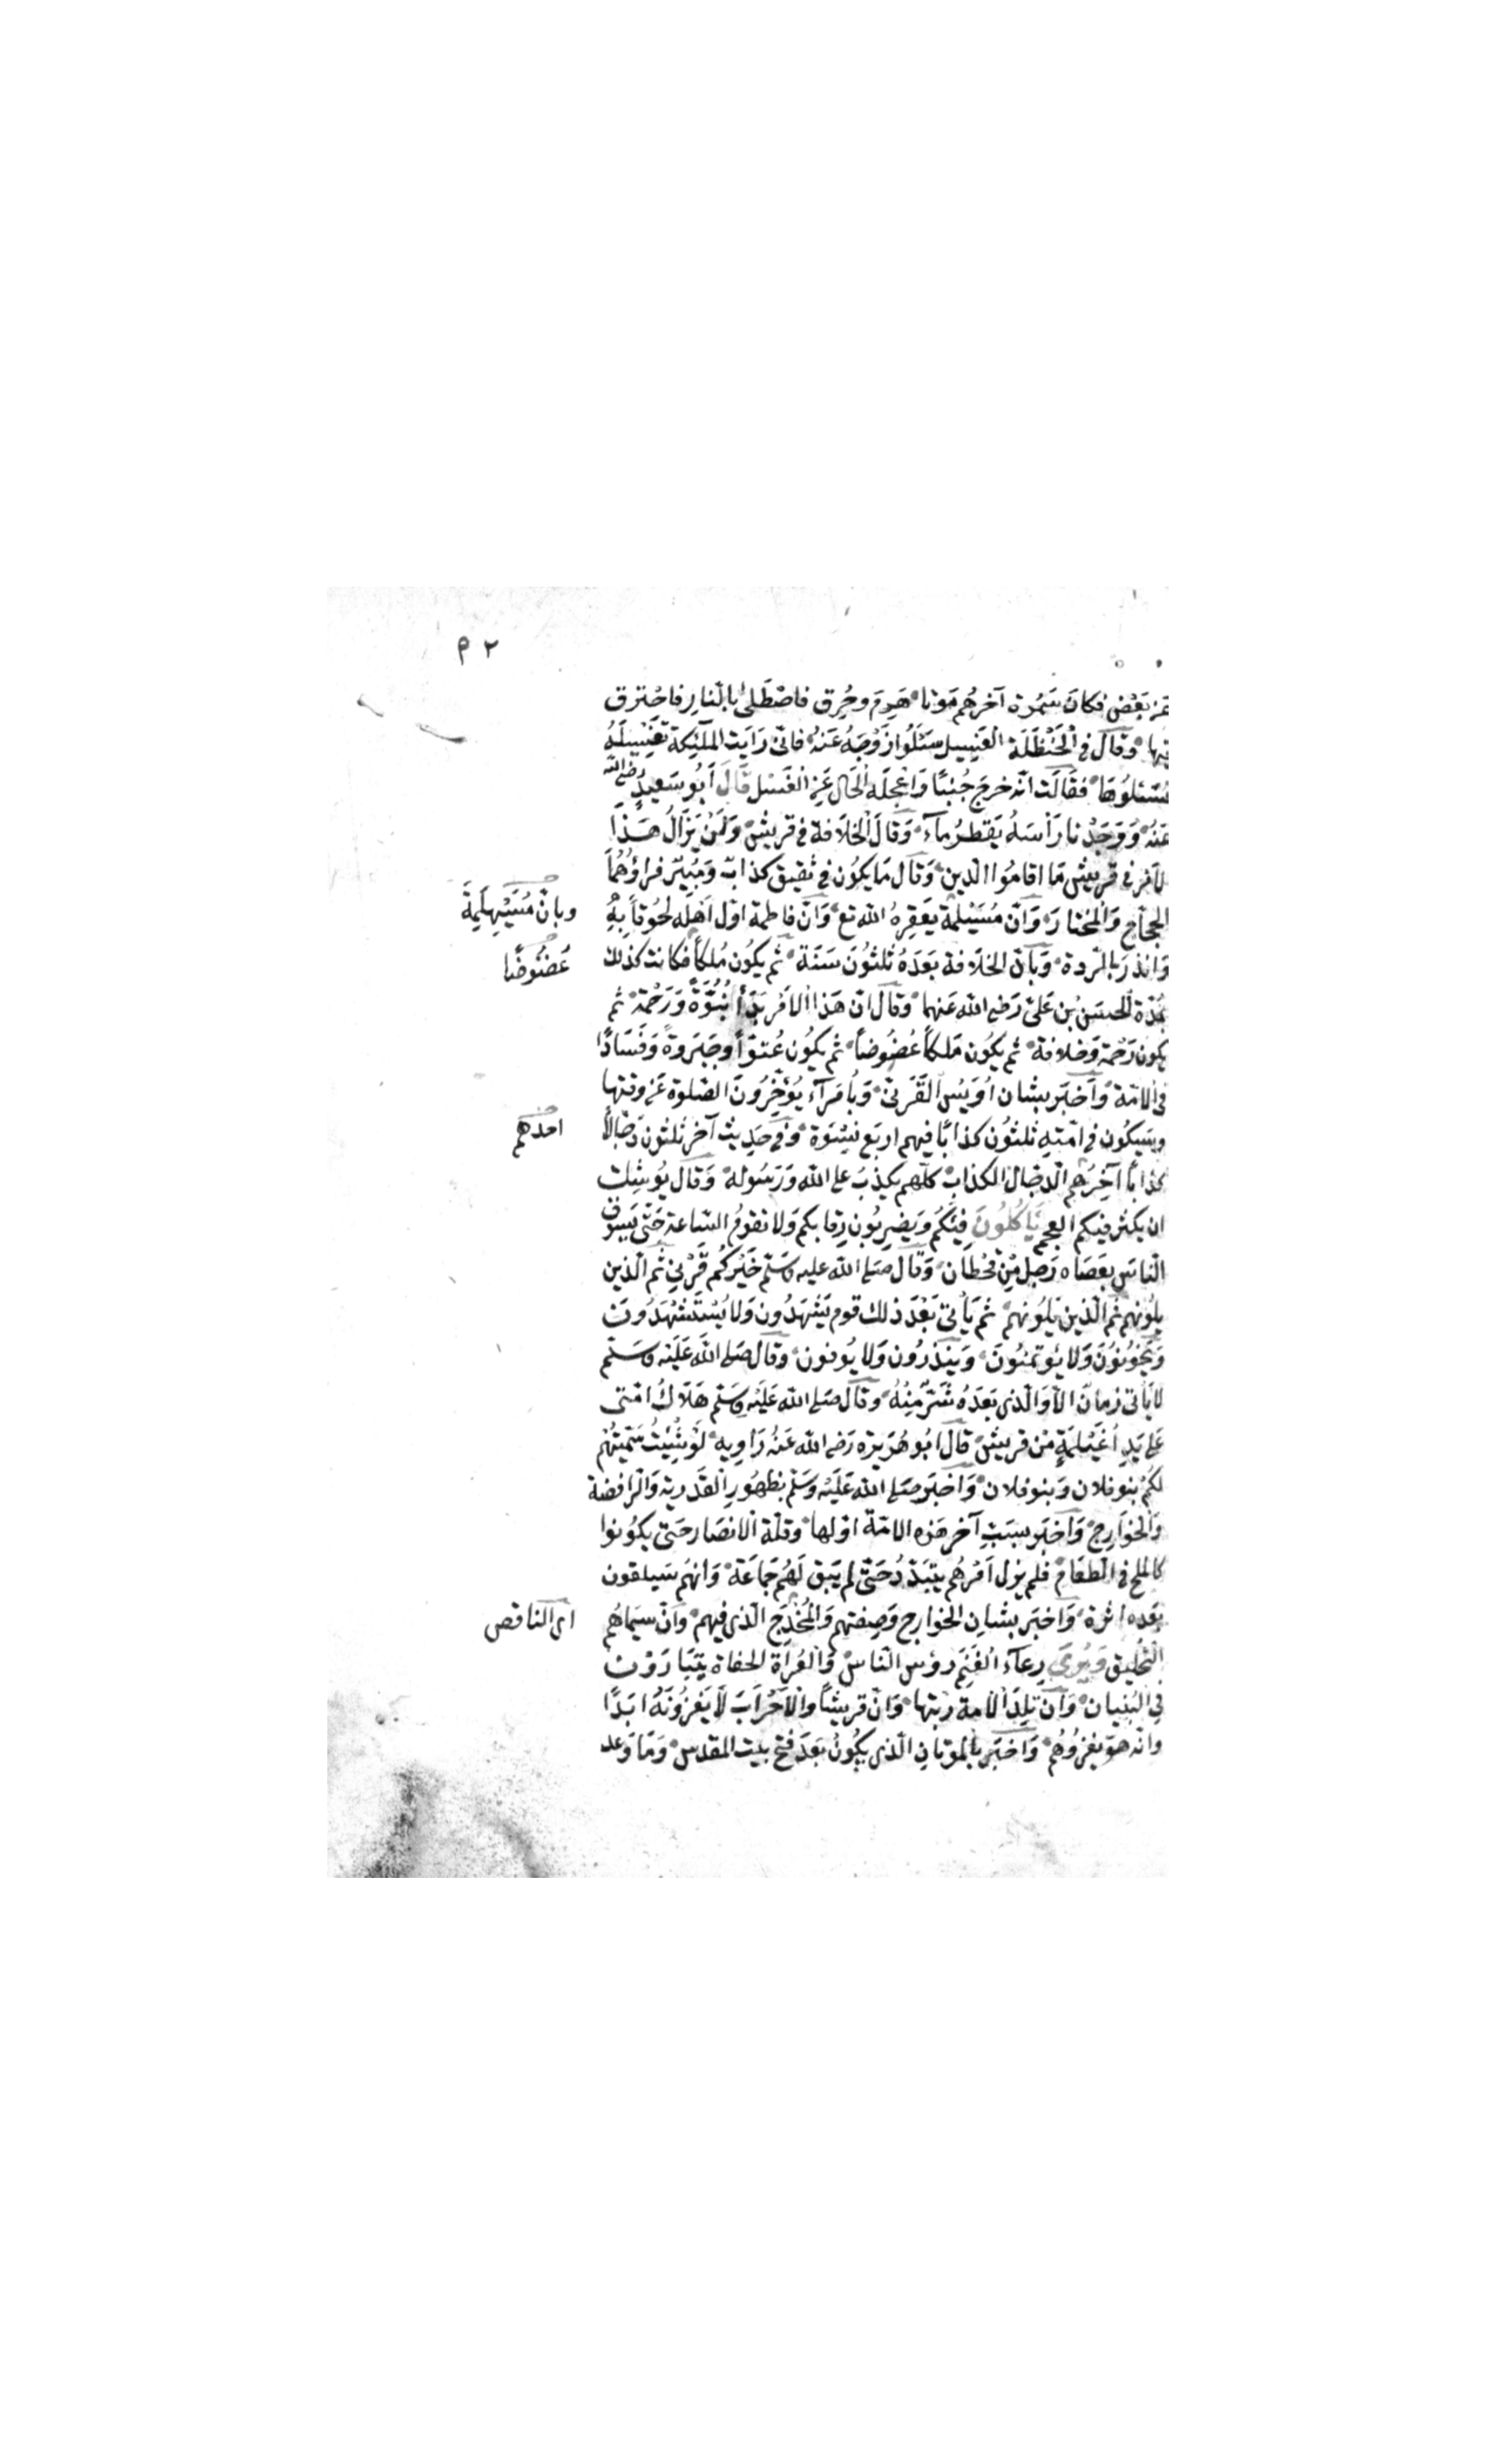 ٩٢
عن بعض فكان سمرة آخرهم موتا هرم وخرق فاصطلى بالنار فاحترق
فيها وقال في الحنظلة الغسيل سئلوا زوجه عنه فاني رأيت الملئكة تغسله
فسئلوها فقالت انه خرج جنبا واعجله الحال عن الغسل قال ابو سعيد رضي الله
عنه ووجدنا رأسه يقطر مآء وقال الخلافة في قريش ولن يزال هذا
الامر في قريش ما اقاموا الدين وقال ما يكون في ثقيف كذاب ومبير فراؤهما
الحجاج والمختار وان مسيلمة يعقره الله تع وان فاطمة اول اهله لحوقا به
وبان مسيلمة
وانذر بالردة وبان الخلافة بعده ثلثون سنة ثم يكون ملكا فكانت كذلك
عضوضا
بمدة الحسن بن علي رضي الله عنهما وقال ان هذا الامر بدأ نبوة ورحمة ثم
يكون رحمة وخلافة ثم يكون ملكا عضوضا ثم يكون عتوا وجبروة وفسادا
في الامة واخبر بشان اويس القرني وبامرآء يؤخرون الصلوة عن وقتها
وسيكون في امته ثلثون كذابا فيهم اربع نسوة وفي حديث آخر ثلثون دجالا
احدهم
كذابا آخرهم الدجال الكذاب كلهم يكذب على الله ورسوله وقال يوشك
ان يكثر فيكم العجم يأكلون فيئكم ويضربون رقابكم ولا تقوم الساعة حتى يسوق
الناس بعصاه رجل من قحطان وقال صلى الله عليه وسلم خيركم قرني ثم الذين
يلونهم ثم الذين يلونهم ثم يأتي بعد ذلك قوم يشهدون ولا يستشهدون
ويخونون ولا يؤتمنون وينذرون ولا يوفون وقال صلى الله عليه وسلم
لا يأتي زمان الا والذي بعده شر منه وقال صلى الله عليه وسلم هلاك امتي
على يد اغيلمة من قريش قال ابو هريرة رضي الله عنه راويه لو شئت سميتهم
لكم بنو فلان وبنو فلان واخبر صلى الله عليه وسلم بظهور القدرية والرافضة
والخوارج واخبر بسب آخر هذه الامة اولها وقلة الانصار حتى يكونوا
كالملح في الطعام فلم يزل امرهم يتبدد حتى لم يبق لهم جماعة وانهم سيلقون
بعده اثرة واخبر بشان الخوارج وصفتهم والمخدج الذي فيهم وان سيماهم
اى الناقص
التحليق ويرى رعآء الغنم رؤس الناس والعراة الحفاة يتبارون
في البنيان وان تلد الامة ربتها وان قريشا والاحزاب لا يغزونه ابدا
وانه هو يغزوهم واخبر بالموتان الذي يكون بعد فتح بيت المقدس وما وعد